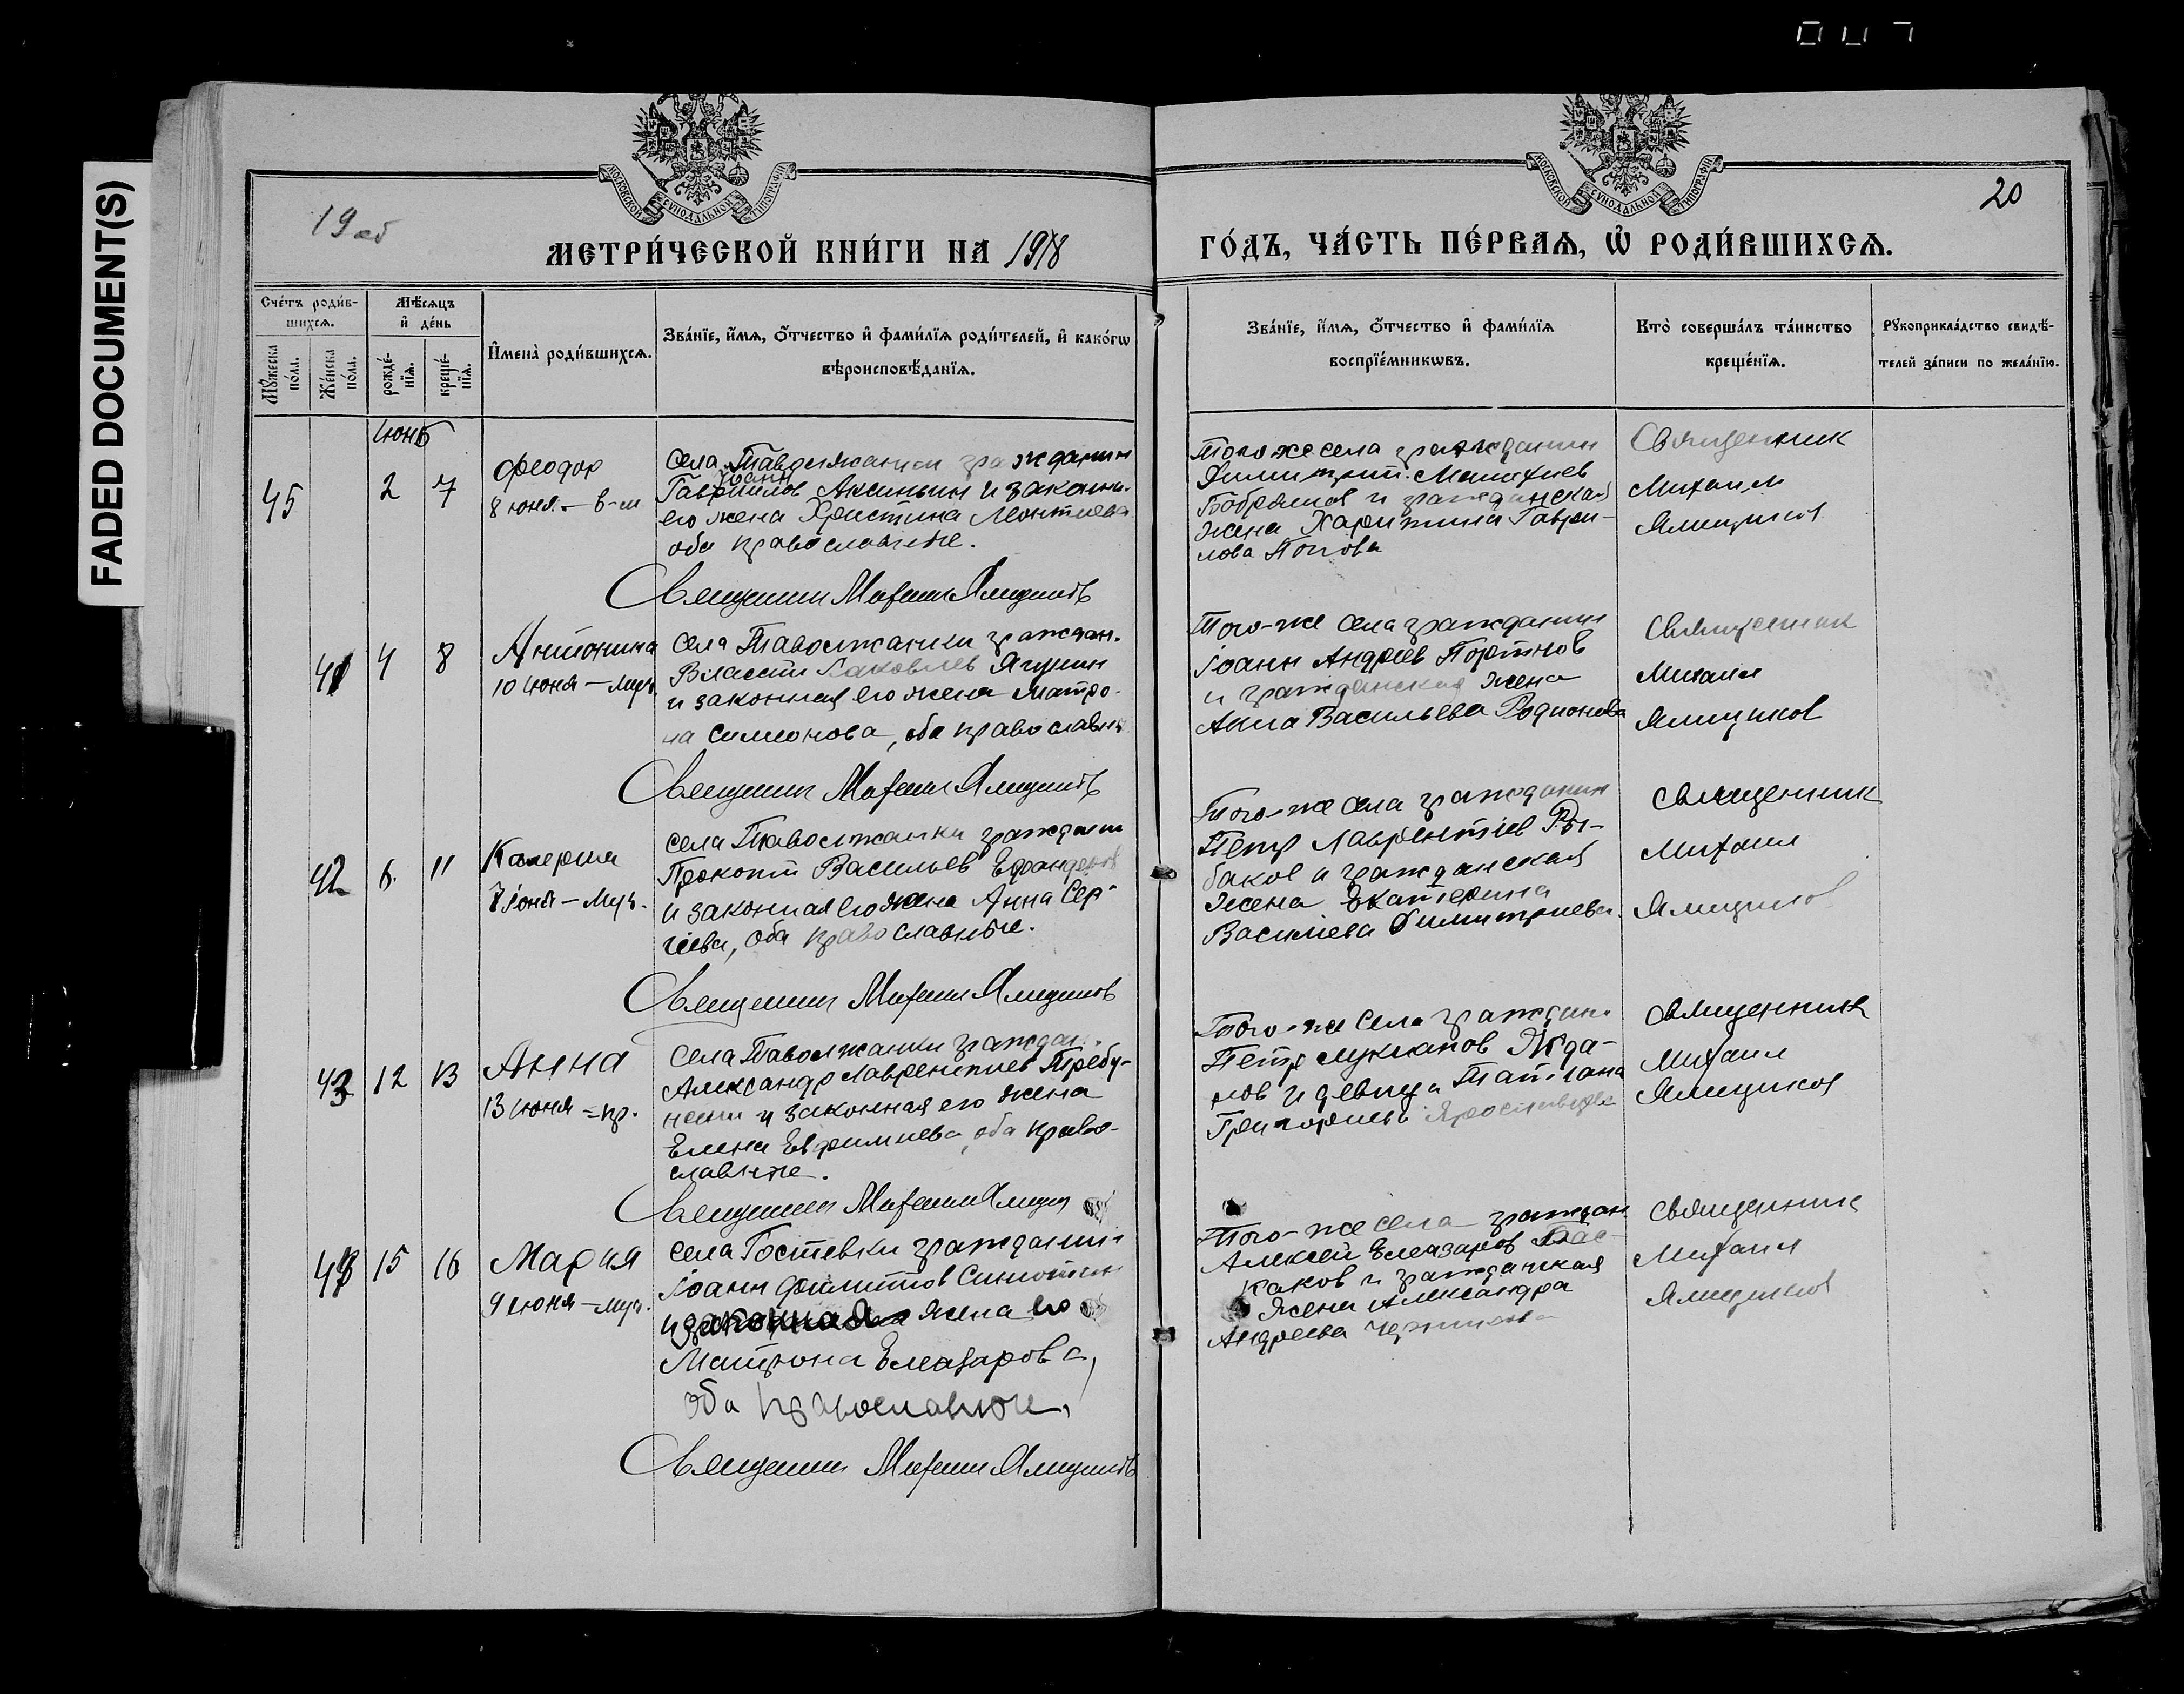 FADED DOCUMENT(S)
19 об
20
МОСКОВСКОЙ СѴНОДАЛЬНОЙ ТИПОГРАФІИ
МОСКОВСКОЙ СѴНОДАЛЬНОЙ ТИПОГРАФІИ
МЕТРИ́ЧЕСКОЙ КНИ́ГИ НА 1918
ГО́ДЪ, ЧА́СТЬ ПЕ́РВАѦ, Ѡ҆ РОДИ́ВШИХСѦ.
Сче́тъ роди́в-
шихсѧ.
Мꙋ́жеска по́ла.
Же́нска по́ла.
Мѣ́сѧцъ
и҆ де́нь
рожде́-
нїѧ.
креще́-
нїѧ.
И҆мена̀ роди́вшихсѧ.
Зва́нїе, и҆́мѧ, ѻ҆́тчество и҆ фами́лїѧ роди́телей, и҆ како́гѡ
вѣроисповѣ́данїѧ.
Зва́нїе, и҆́мѧ, ѻ҆́тчество и҆ фами́лїѧ
воспрїе́мникѡвъ.
Кто̀ соверша́лъ та́инство
креще́нїѧ.
Рꙋкоприкла́дство свидѣ́-
телей за́писи по жела́нїю.
Июнь
45
2
7
Феодор
8 июня.
села Таволжанки гражданин
Иоанн
Гавриилов Акиньшин и законн.
его жена Христина Леонтиева
оба православные.
Священник Михаил Ямщиковъ
того же села гражданин
Димитрий
и гражданская
жена Харитина Гаври-
лова Попова
Священник
Михаил
Ямщиков
41
4
8
Антонина
10 июня – муч.
села Таволжанки граждан.
Власий Иаковлев Ягунин
и законная его жена Матро-
на Симеонова, оба православн
Священник Михаил Ямщиковъ
того-же села гражданин
Іоанн Андреев Портнов
и гражданская жена
Анна Васильева Родионова
Священник
Михаил
Ямщиков
42
6.
11
Калерия
7 іюня – Муч.
села Таволжанки гражданин
Прокопий Васильев
и законная его жена Анна Сер-
гіева, оба православные.
Священник Михаил Ямщиков
того-же села гражданин
Петр Лаврентіев Ры-
баков и гражданская
жена Екатерина
Василиева Димитриева.
Священник
Михаил
Ямщиков
43
12
13
Анна
13 июня – пр.
села Таволжанки граждан.
Александр Лаврентиев Требу-
и законная его жена
Елена Евфимиева, оба право-
славные.
Священник Михаил Ямщик
того-же села граждан.
Петр Лукианов Жда-
нов и девица Татиана
Григориева
Священник
Михаил
Ямщиков
15
16
Мария
9 июня – муч.
села Гостевки гражданин
Іоанн Филиппов
и законная жена его
Матрона Елеазарова,
оба православные.
Священник Михаил Ямщиковъ
того-же села граждан
Алексей Елеазаров
каков и гражданская
жена Александра
Андреева
Священник
Михаил
Ямщиков